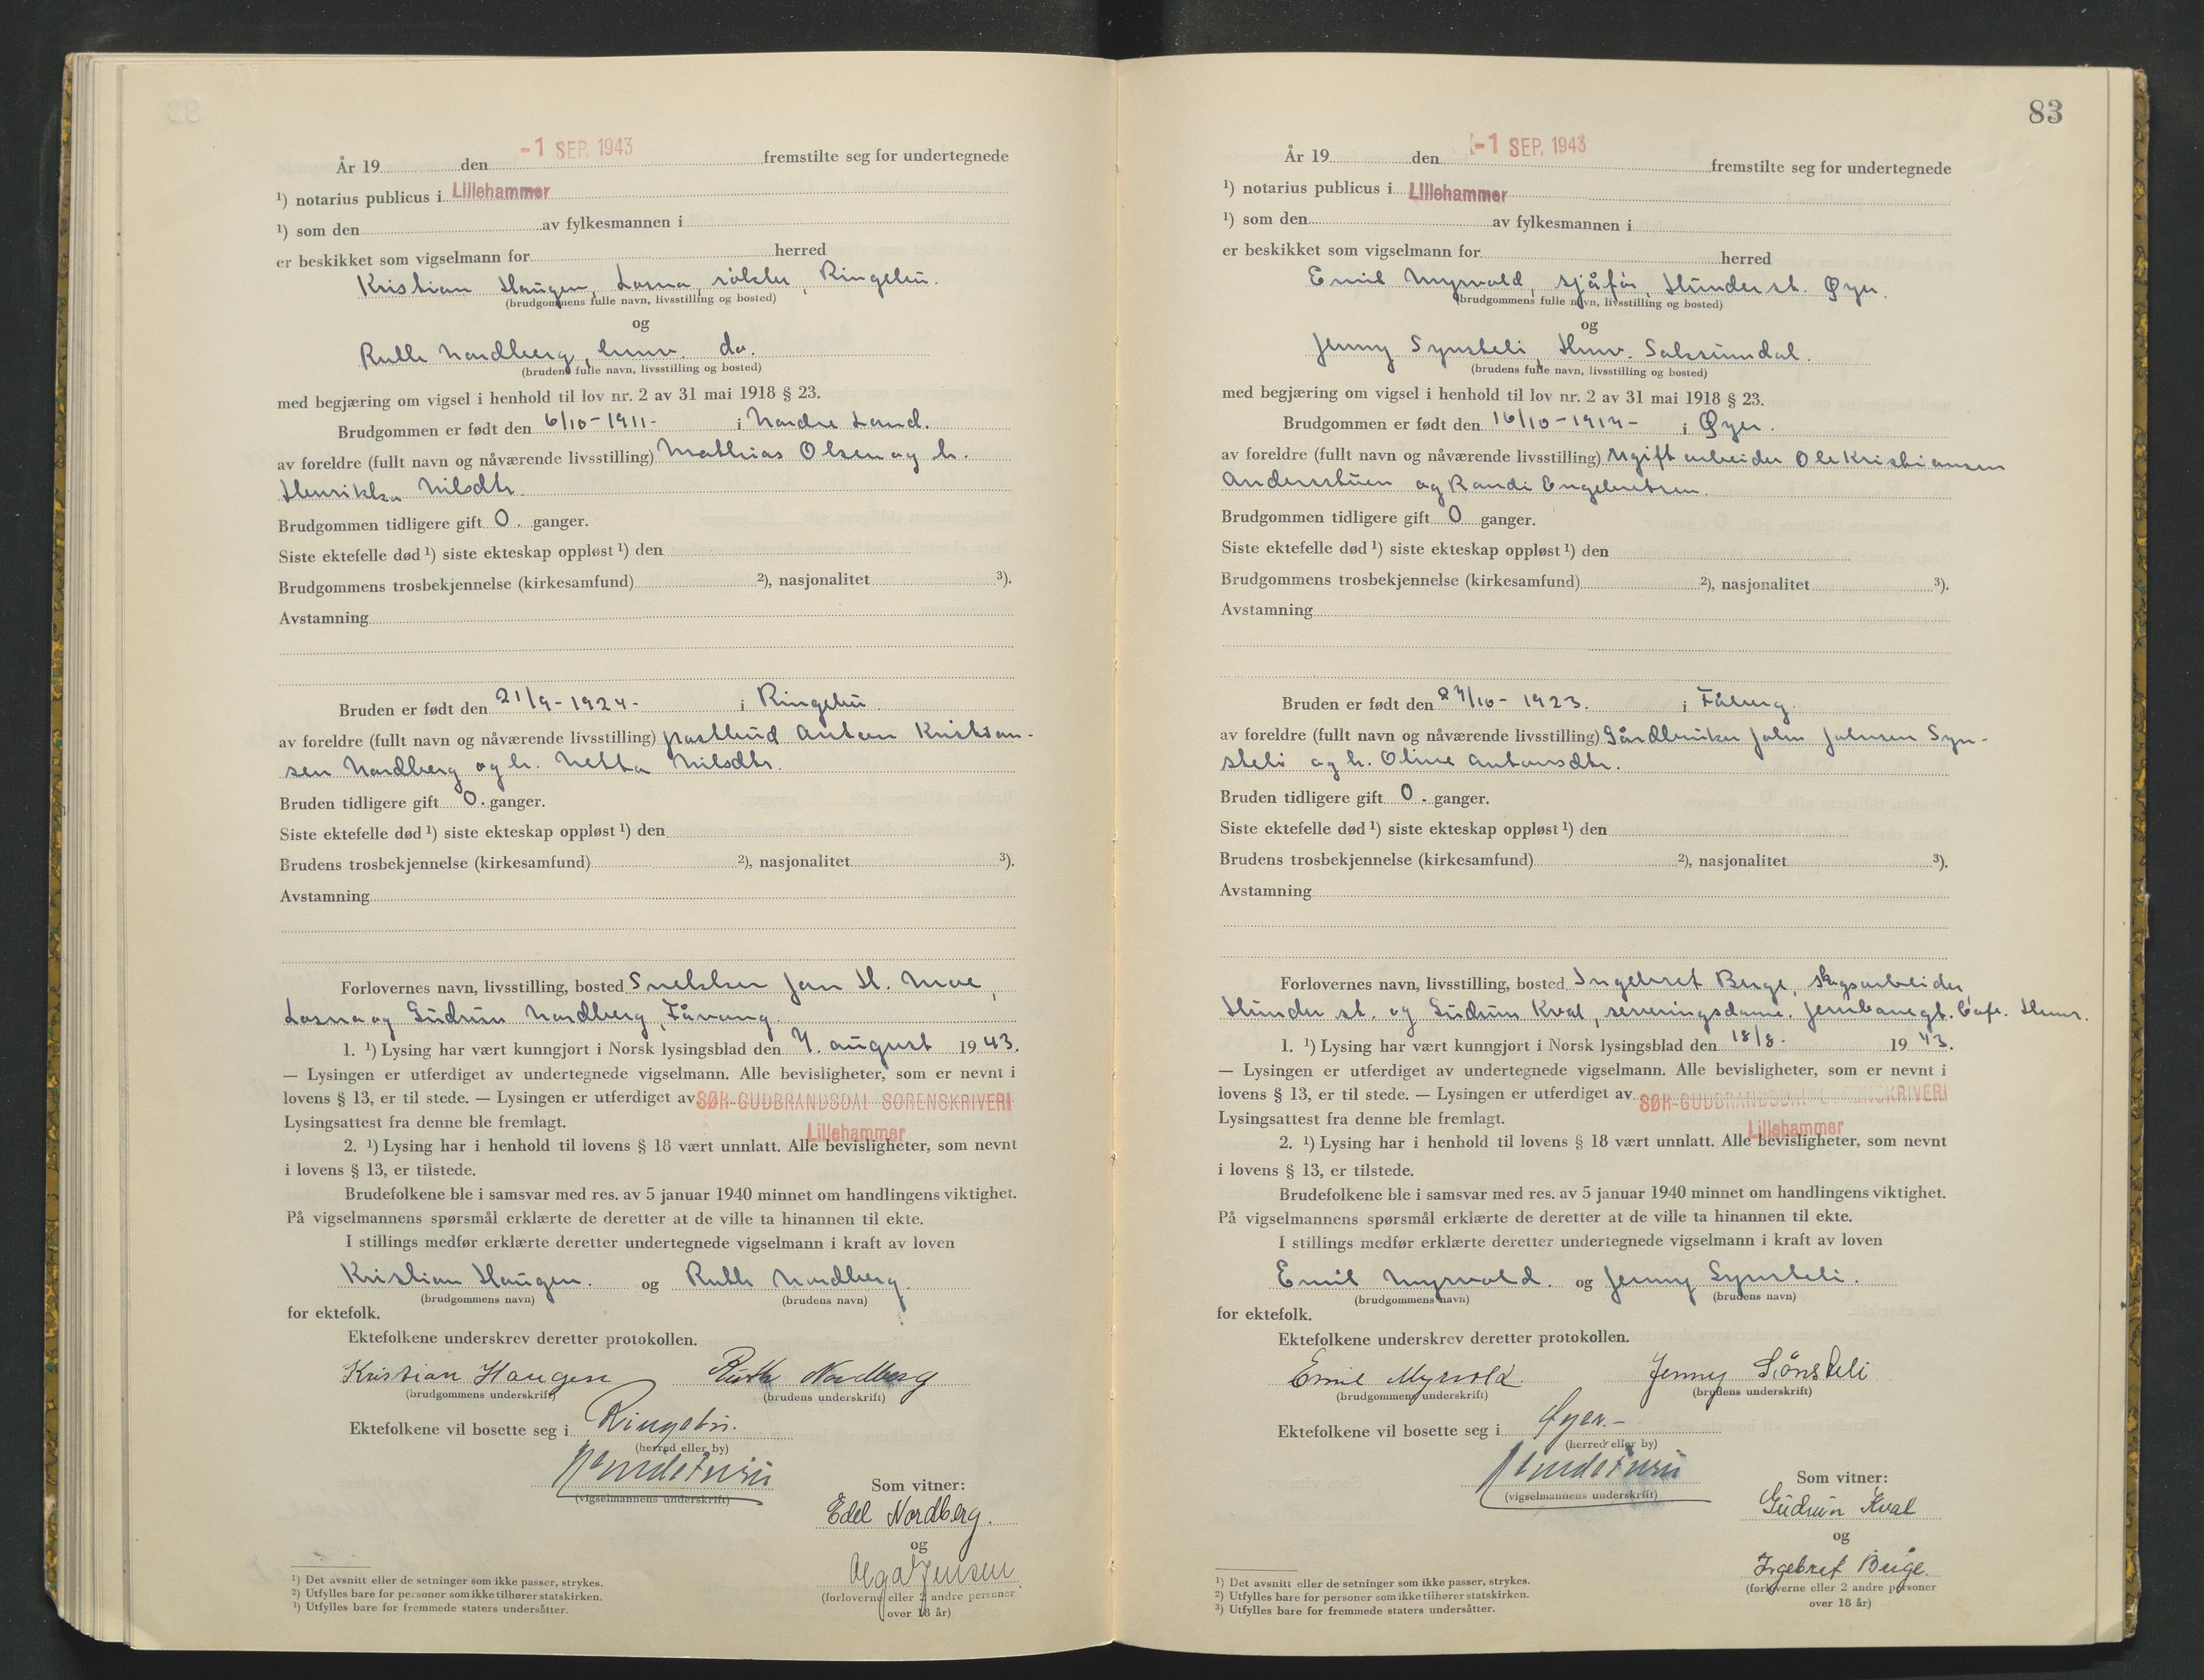 År 19 den -1 SEP. 1943 fremstilte seg for undertegnede
¹) notarius publicus i Lillehammer
¹) som den av fylkesmannen i
er beskikket som vigselmann for herred
Kristian Haugen, Losna, Ringebu.
(brudgommens fulle navn, livsstilling og bosted)
og
Ruth Nordberg, do.
(brudens fulle navn, livsstilling og bosted)
med begjæring om vigsel i henhold til lov nr. 2 av 31 mai 1918 § 23.
Brudgommen er født den 6/10-1911- i Nordre Land.
av foreldre (fullt navn og nåværende livsstilling) Mathias Olsen og h.
Henrikka Nilsdtr.
Brudgommen tidligere gift 0. ganger.
Siste ektefelle død ¹) siste ekteskap oppløst ¹) den
Brudgommens trosbekjennelse (kirkesamfund) ²), nasjonalitet ³).
Avstamning
Bruden er født den 21/9-1924- i Ringebu.
av foreldre (fullt navn og nåværende livsstilling) postbud Anton Kristian-
sen Nordberg og h. Netta Nilsdtr.
Bruden tidligere gift 0. ganger.
Siste ektefelle død ¹) siste ekteskap oppløst ¹) den
Brudens trosbekjennelse (kirkesamfund) ²), nasjonalitet ³).
Avstamning
Forlovernes navn, livsstilling, bosted Snekker Jon H. Moe,
Losna og Gudrun Nordberg, Fåvang
1. ¹) Lysing har vært kunngjort i Norsk lysingsblad den 7. august 1943.
— Lysingen er utferdiget av undertegnede vigselmann. Alle bevisligheter, som er nevnt i
lovens § 13, er til stede. — Lysingen er utferdiget av SØR-GUDBRANDSDAL SORENSKRIVERI
Lysingsattest fra denne ble fremlagt. Lillehammer
2. ¹) Lysing har i henhold til lovens § 18 vært unnlatt. Alle bevisligheter, som nevnt
i lovens § 13, er tilstede.
Brudefolkene ble i samsvar med res. av 5 januar 1940 minnet om handlingens viktighet.
På vigselmannens spørsmål erklærte de deretter at de ville ta hinannen til ekte.
I stillings medfør erklærte deretter undertegnede vigselmann i kraft av loven
Kristian Haugen. og Ruth Nordberg.
(brudgommens navn) (brudens navn)
for ektefolk.
Ektefolkene underskrev deretter protokollen.
Kristian Haugen Ruth Nordberg
(brudgommens underskrift) (brudens underskrift)
Ektefolkene vil bosette seg i Ringebu.
(herred eller by)
(vigselmannens underskrift)
Som vitner:
Edel Nordberg.
og
Olga Jensen
(forloverne eller 2 andre personer
over 18 år)
¹) Det avsnitt eller de setninger som ikke passer, strykes.
²) Utfylles bare for personer som ikke tilhører statskirken.
³) Utfylles bare for fremmede staters undersåtter.
83
År 19 den -1 SEP. 1943 fremstilte seg for undertegnede
¹) notarius publicus i Lillehammer
¹) som den av fylkesmannen i
er beskikket som vigselmann for herred
Emil Myrvold, sjåfør, Hunder st. Øyer.
(brudgommens fulle navn, livsstilling og bosted)
og
Jenny Synsteli, Hmv. Saksumdal.
(brudens fulle navn, livsstilling og bosted)
med begjæring om vigsel i henhold til lov nr. 2 av 31 mai 1918 § 23.
Brudgommen er født den 16/10-1917- i Øyer.
av foreldre (fullt navn og nåværende livsstilling) Ugift arbeider Ole Kristiansen
Anderstuen og Randi Engebretsen.
Brudgommen tidligere gift 0 ganger.
Siste ektefelle død ¹) siste ekteskap oppløst ¹) den
Brudgommens trosbekjennelse (kirkesamfund) ²), nasjonalitet ³).
Avstamning
Bruden er født den 27/10-1923. i Fåberg.
av foreldre (fullt navn og nåværende livsstilling) Gårdbruker John Johnsen Syn-
steli og h. Oline Antonsdtr.
Bruden tidligere gift 0. ganger.
Siste ektefelle død ¹) siste ekteskap oppløst ¹) den
Brudens trosbekjennelse (kirkesamfund) ²), nasjonalitet ³).
Avstamning
Forlovernes navn, livsstilling, bosted Ingebret Berge, skogsarbeider
Hunder st. og Gudrun Kval, serveringsdame, Jernbanegt. Café. Hmr.
1. ¹) Lysing har vært kunngjort i Norsk lysingsblad den 18/8. 1943.
— Lysingen er utferdiget av undertegnede vigselmann. Alle bevisligheter, som er nevnt i
lovens § 13, er til stede. — Lysingen er utferdiget av SØR-GUDBRANDSDAL SORENSKRIVERI
Lysingsattest fra denne ble fremlagt. Lillehammer
2. ¹) Lysing har i henhold til lovens § 18 vært unnlatt. Alle bevisligheter, som nevnt
i lovens § 13, er tilstede.
Brudefolkene ble i samsvar med res. av 5 januar 1940 minnet om handlingens viktighet.
På vigselmannens spørsmål erklærte de deretter at de ville ta hinannen til ekte.
I stillings medfør erklærte deretter undertegnede vigselmann i kraft av loven
Emil Myrvold. og Jenny Synsteli.
(brudgommens navn) (brudens navn)
for ektefolk.
Ektefolkene underskrev deretter protokollen.
Emil Myrvold Jenny Sönsteli
(brudgommens underskrift) (brudens underskrift)
Ektefolkene vil bosette seg i Øyer.-
(herred eller by)
(vigselmannens underskrift)
Som vitner:
Gudrun Kval
og
Ingebret Berge.
(forloverne eller 2 andre personer
over 18 år)
¹) Det avsnitt eller de setninger som ikke passer, strykes.
²) Utfylles bare for personer som ikke tilhører statskirken.
³) Utfylles bare for fremmede staters undersåtter.